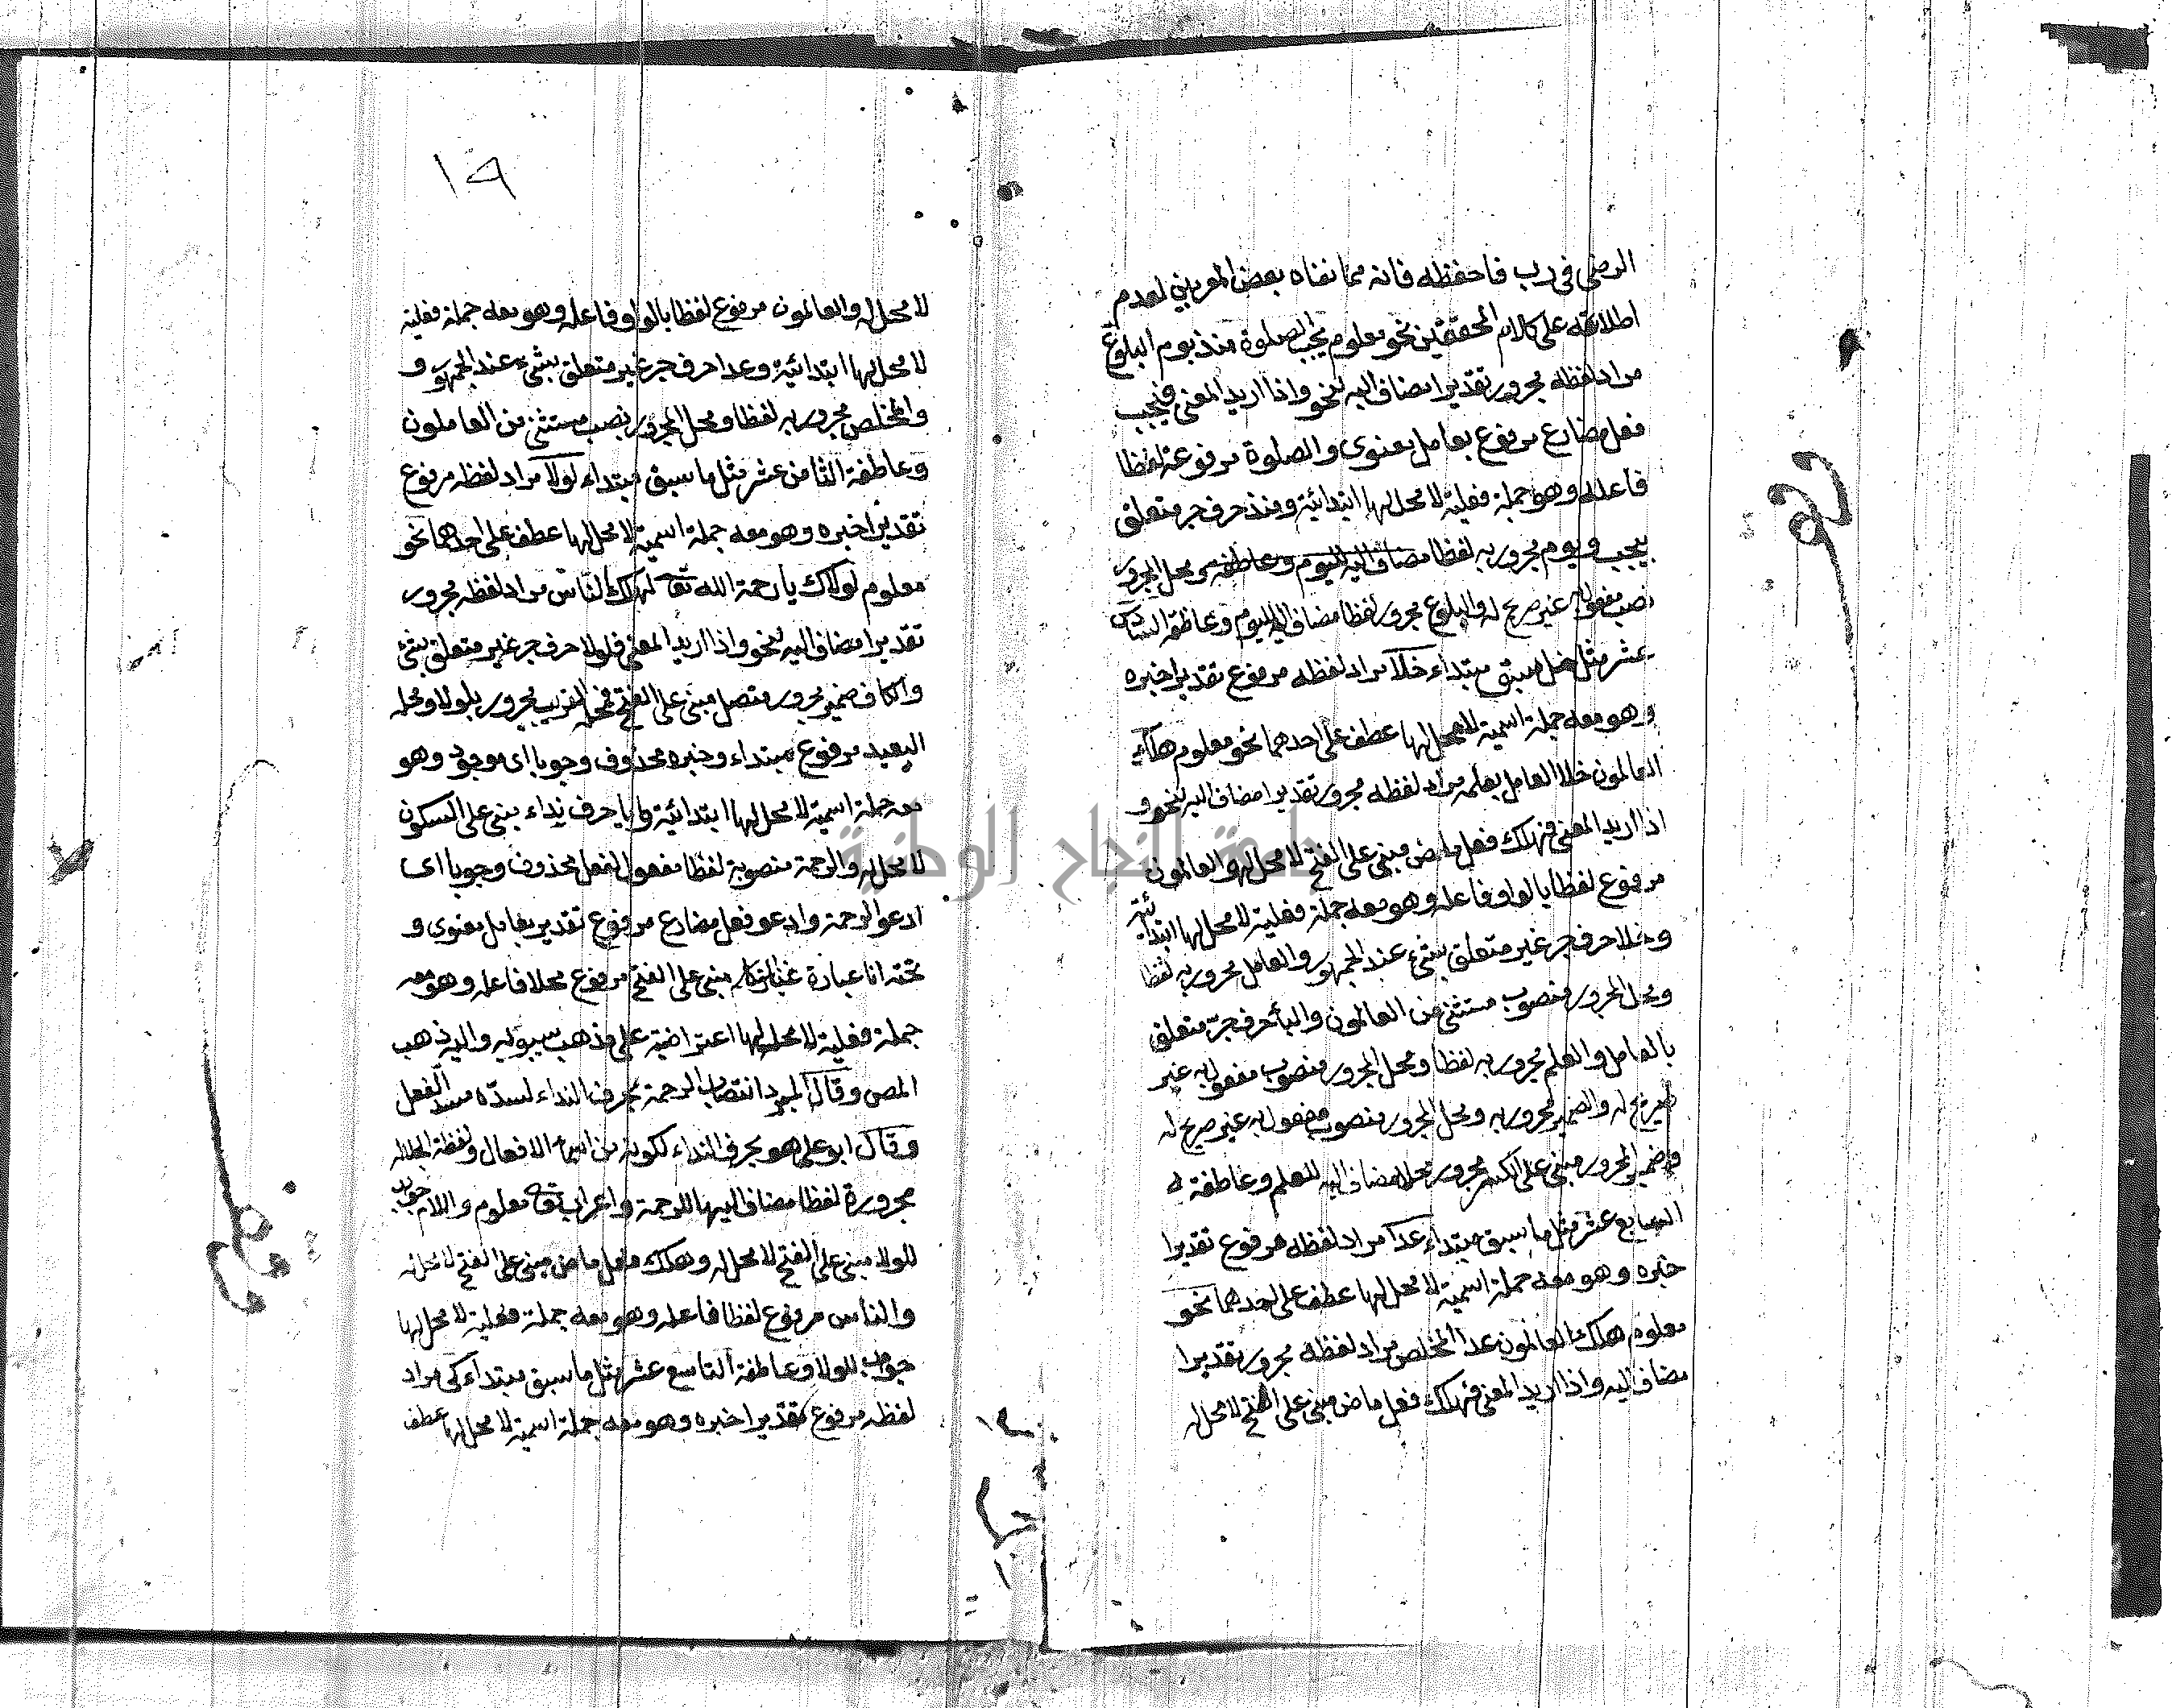 الرضى فى رب فاحفظه فانه مما نفاه بعض المعربين لعدم
اطلاقه على كلام المحققين نحو معلوم يجب الصلوة منذ يوم البلوغ
مراد لفظه مجرور تقديرا مضاف اليه لنحو واذا اريد المعنى فيجب
فعل مضارع مرفوع بعامل معنوى والصلوة مرفوعة لفظا
فاعله وهو جملة فعلية لا محل لها ابتدائية ومنذ حرف جر متعلق
بيجب ويوم مجرور به لفظا مضاف اليه لليوم وعاطفة ومحل المجرور
نصب مفعول به غير صريح له والبلوغ مجرور لفظا مضاف اليه لليوم وعاطفة السادس
عشر مثل ما سبق مبتداء خلا مراد لفظه مرفوع تقديرا خبره
وهو معه جملة اسمية لا محل لها عطف على احدهما نحو معلوم هلك
العالمون خلا العامل بعلمه مراد لفظه مجرور تقديرا مضاف اليه لنحو و
اذا اريد المعنى فهلك فعل ماض مبنى على الفتح لا محل له والعالمون
مرفوع لفظا بالواو فاعله وهو معه جملة فعلية لا محل لها ابتدائية
وخلا حرف جر غير متعلق بشئ عند الجمهور والعامل مجرور به لفظا
ومحل المجرور منصوب مستثنى من العالمون والباء حرف جر متعلق
بالعامل والعلم مجرور به لفظا ومحل المجرور منصوب مفعول به غير
صريح له والضمير مجرور به ومحل المجرور منصوب مفعول به غير صريح له
وضمير المجرور مبنى على الكسر مجرور محلا مضاف اليه للعلم وعاطفة له
السابع عشر مثل ما سبق مبتداء عدا مراد لفظه مرفوع تقديرا
خبره وهو معه جملة اسمية لا محل لها عطف على احدهما نحو
معلوم هلك العالمون عدا المخلص مراد لفظه مجرور تقديرا
مضاف اليه واذا اريد المعنى فهلك فعل ماض مبنى على الفتح لا محل له
١٩
لا محل له والعالمون مرفوع لفظا بالواو فاعله وهو معه جملة فعلية
لا محل لها ابتدائية وعدا حرف جر غير متعلق بشئ عند الجمهور و
والمخلص مجرور به لفظا ومحل المجرور نصب مستثنى من العاملون
وعاطفة الثامن عشر مثل ما سبق مبتداء لولا مراد لفظه مرفوع
تقديرا خبره وهو معه جملة اسمية لا محل لها عطف على احدهما نحو
معلوم لولاك يا رحمة الله تع لهلك الناس مراد لفظه مجرور
تقديرا مضاف اليه لنحو واذا اريد المعنى فلولا حرف جر غير متعلق بشئ
والكاف ضمير مجرور متصل مبنى على الفتح فمحله القريب مجرور بلولا ومحله
البعيد مرفوع مبتداء وخبره محذوف وجوبا اى موجود وهو
معه جملة اسمية لا محل لها ابتدائية ويا حرف نداء مبنى على السكون
لا محل له والرحمة منصوبة لفظا مفعول لفعل محذوف وجوبا اى
ادعو الرحمة وادعو فعل مضارع مرفوع تقديرا بعامل معنوى و
تحته انا عبارة عن المتكلم مبنى على الفتح مرفوع محلا فاعله وهو معه
جملة فعلية لا محل لها اعتراضية على مذهب سيبويه واليه ذهب
المص وقال المبرد انتصاب الرحمة بحرف النداء لسدّه مسد الفعل
وقال ابو على هو بحرف النداء لكونه من اسماء الافعال ولفظة الجلالة
مجرورة لفظا مضاف اليها للرحمة واعراب تع معلوم واللام جواب
للولا مبنى على الفتح لا محل له وهلك فعل ماض مبنى على الفتح لا محل له
والناس مرفوع لفظا فاعله وهو معه جملة فعلية لا محل لها
جواب للولا وعاطفة التاسع عشر مثل ما سبق مبتداء كى مراد
لفظه مرفوع تقديرا خبره وهو معه جملة اسمية لا محل لها عطف
جامعة النجاح الوطنية